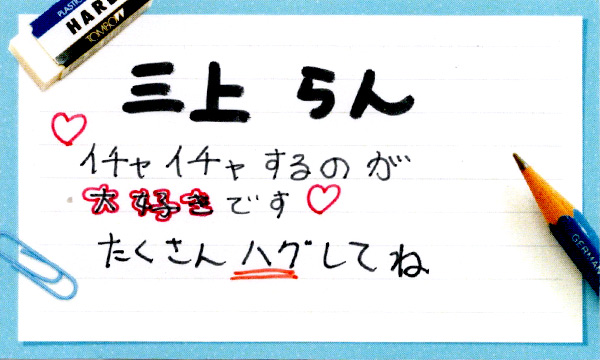 PLASTIC
HARD
TOMBOW
三上 らん
イチャイチャするのが
大好きです
たくさんハグしてね
GERMAN